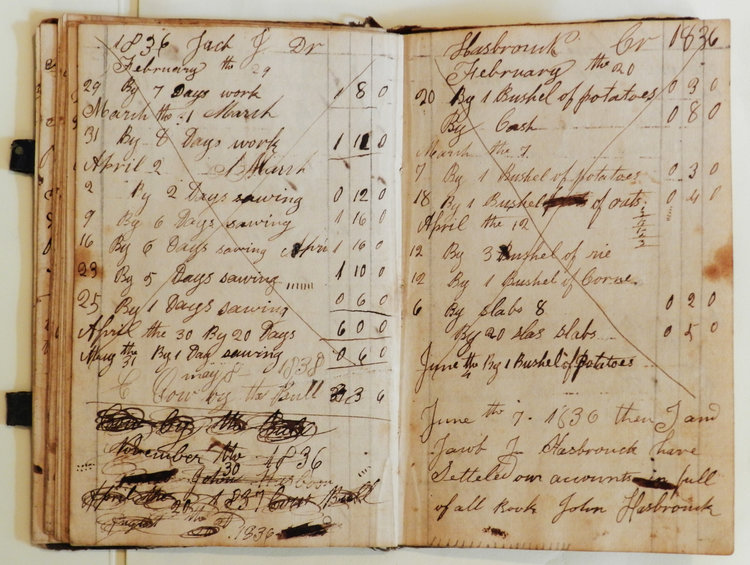 1836 Jack J Dr
February the 29
29 By 7 Days work 1 8 0
March the 1 March
31 By 8 Days work 1 12 0
April 2 March
2 By 2 Days sawing 0 12 0
9 By 6 Days sawing 1 16 0
16 By 6 Days sawing Apri 1 16 0
23 By 5 Days sawing 1 10 0
25 By 1 Days sawing 0 6 0
April the 30 By 20 Days 6 0 0
May the 31 By 1 Day sawing 0 6 0
may 8 1838
Cow by the Bull 3 6
November the 1836
30
John Hasboon
April the 1837 Cow Bull
August the
1836
Hasbrouck Cr 1836
February the 20
20 By 1 Bushel of potatoes 0 3 0
By Cash 0 8 0
March the 7
7 By 1 Bushel of potatoes 0 3 0
18 By 1 Bushel of oats 0 4 0
April the 12
12 By 3 Bushel of rie
12 By 1 Bushel of Corne
6 By slabs 8 0 2 0
By 20 slabs 0 5 0
June the By 1 Bushel Potatoes
June the 7 1836 then I and
Jacob J Hasbrouck have
Setteled our acounts in full
of all Book John Hasbrouck